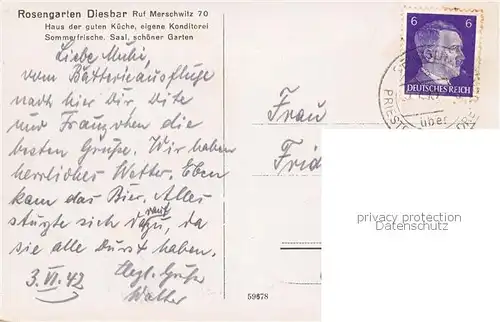 Rosengarten Diesbar Ruf Merschwitz 70
Haus der guten Küche, eigene Konditorei
Sommerfrische. Saal, schöner Garten
Liebe Muhi,
vom Batterieausfluge
nach hier Dir, Dite
und Franzchen die
besten Grüße. Wir haben
herrliches Wetter. Eben
kam das Bier. Alles
stürzte sich drauf zu, da
sie alle Durst haben.
3. VI. 42 Hzgl. Grüße
Walter
6 6
DEUTSCHES REICH
über
PRIEST
Frau
Frid
privacy protection
Datenschutz
59678